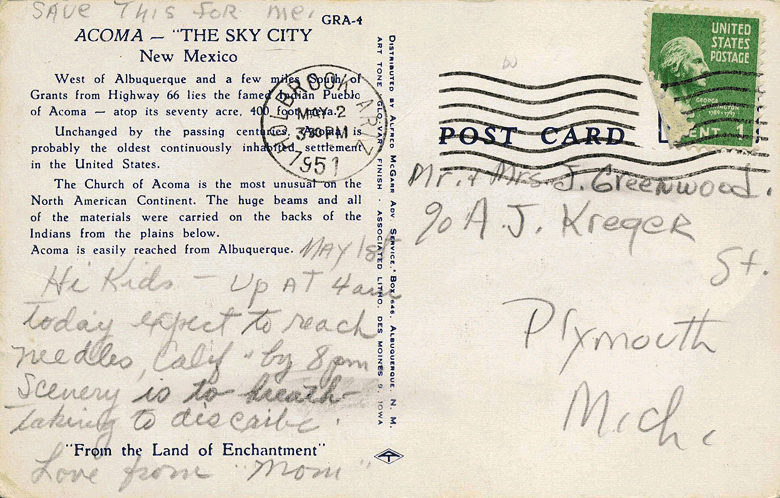 SAVE THIS FOR ME.
GRA-4
ACOMA — "THE SKY CITY
New Mexico
West of Albuquerque and a few miles South of
Grants from Highway 66 lies the famed Indian Pueblo
of Acoma — atop its seventy acre, 400 foot mesa.
Unchanged by the passing centuries, Acoma is
probably the oldest continuously inhabited settlement
in the United States.
The Church of Acoma is the most unusual on the
North American Continent. The huge beams and all
of the materials were carried on the backs of the
Indians from the plains below.
Acoma is easily reached from Albuquerque.
MAY 1st
Hi Kids — UP AT 4am
today expect to reach
needles, Calif by 8pm
Scenery is to breath
taking to discribe.
"From the Land of Enchantment"
Love from "Mom"
DISTRIBUTED BY ALFRED MCGARR ADV SERVICE, BOX 646, ALBUQUERQUE, N. M.
ART TONE "GLO-VAR" FINISH - ASSOCIATED LITHO, DES MOINES 9, IOWA
HOLBROOK, ARIZ
MAY 2
3 30 PM
1951
UNITED
STATES
POSTAGE
GEORGE
WASHINGTON
1789-1797
CENT 1
POST CARD
Mr. & Mrs. J. Greenwood.
% A. J. Kreger
St.
Plymouth
Mich.